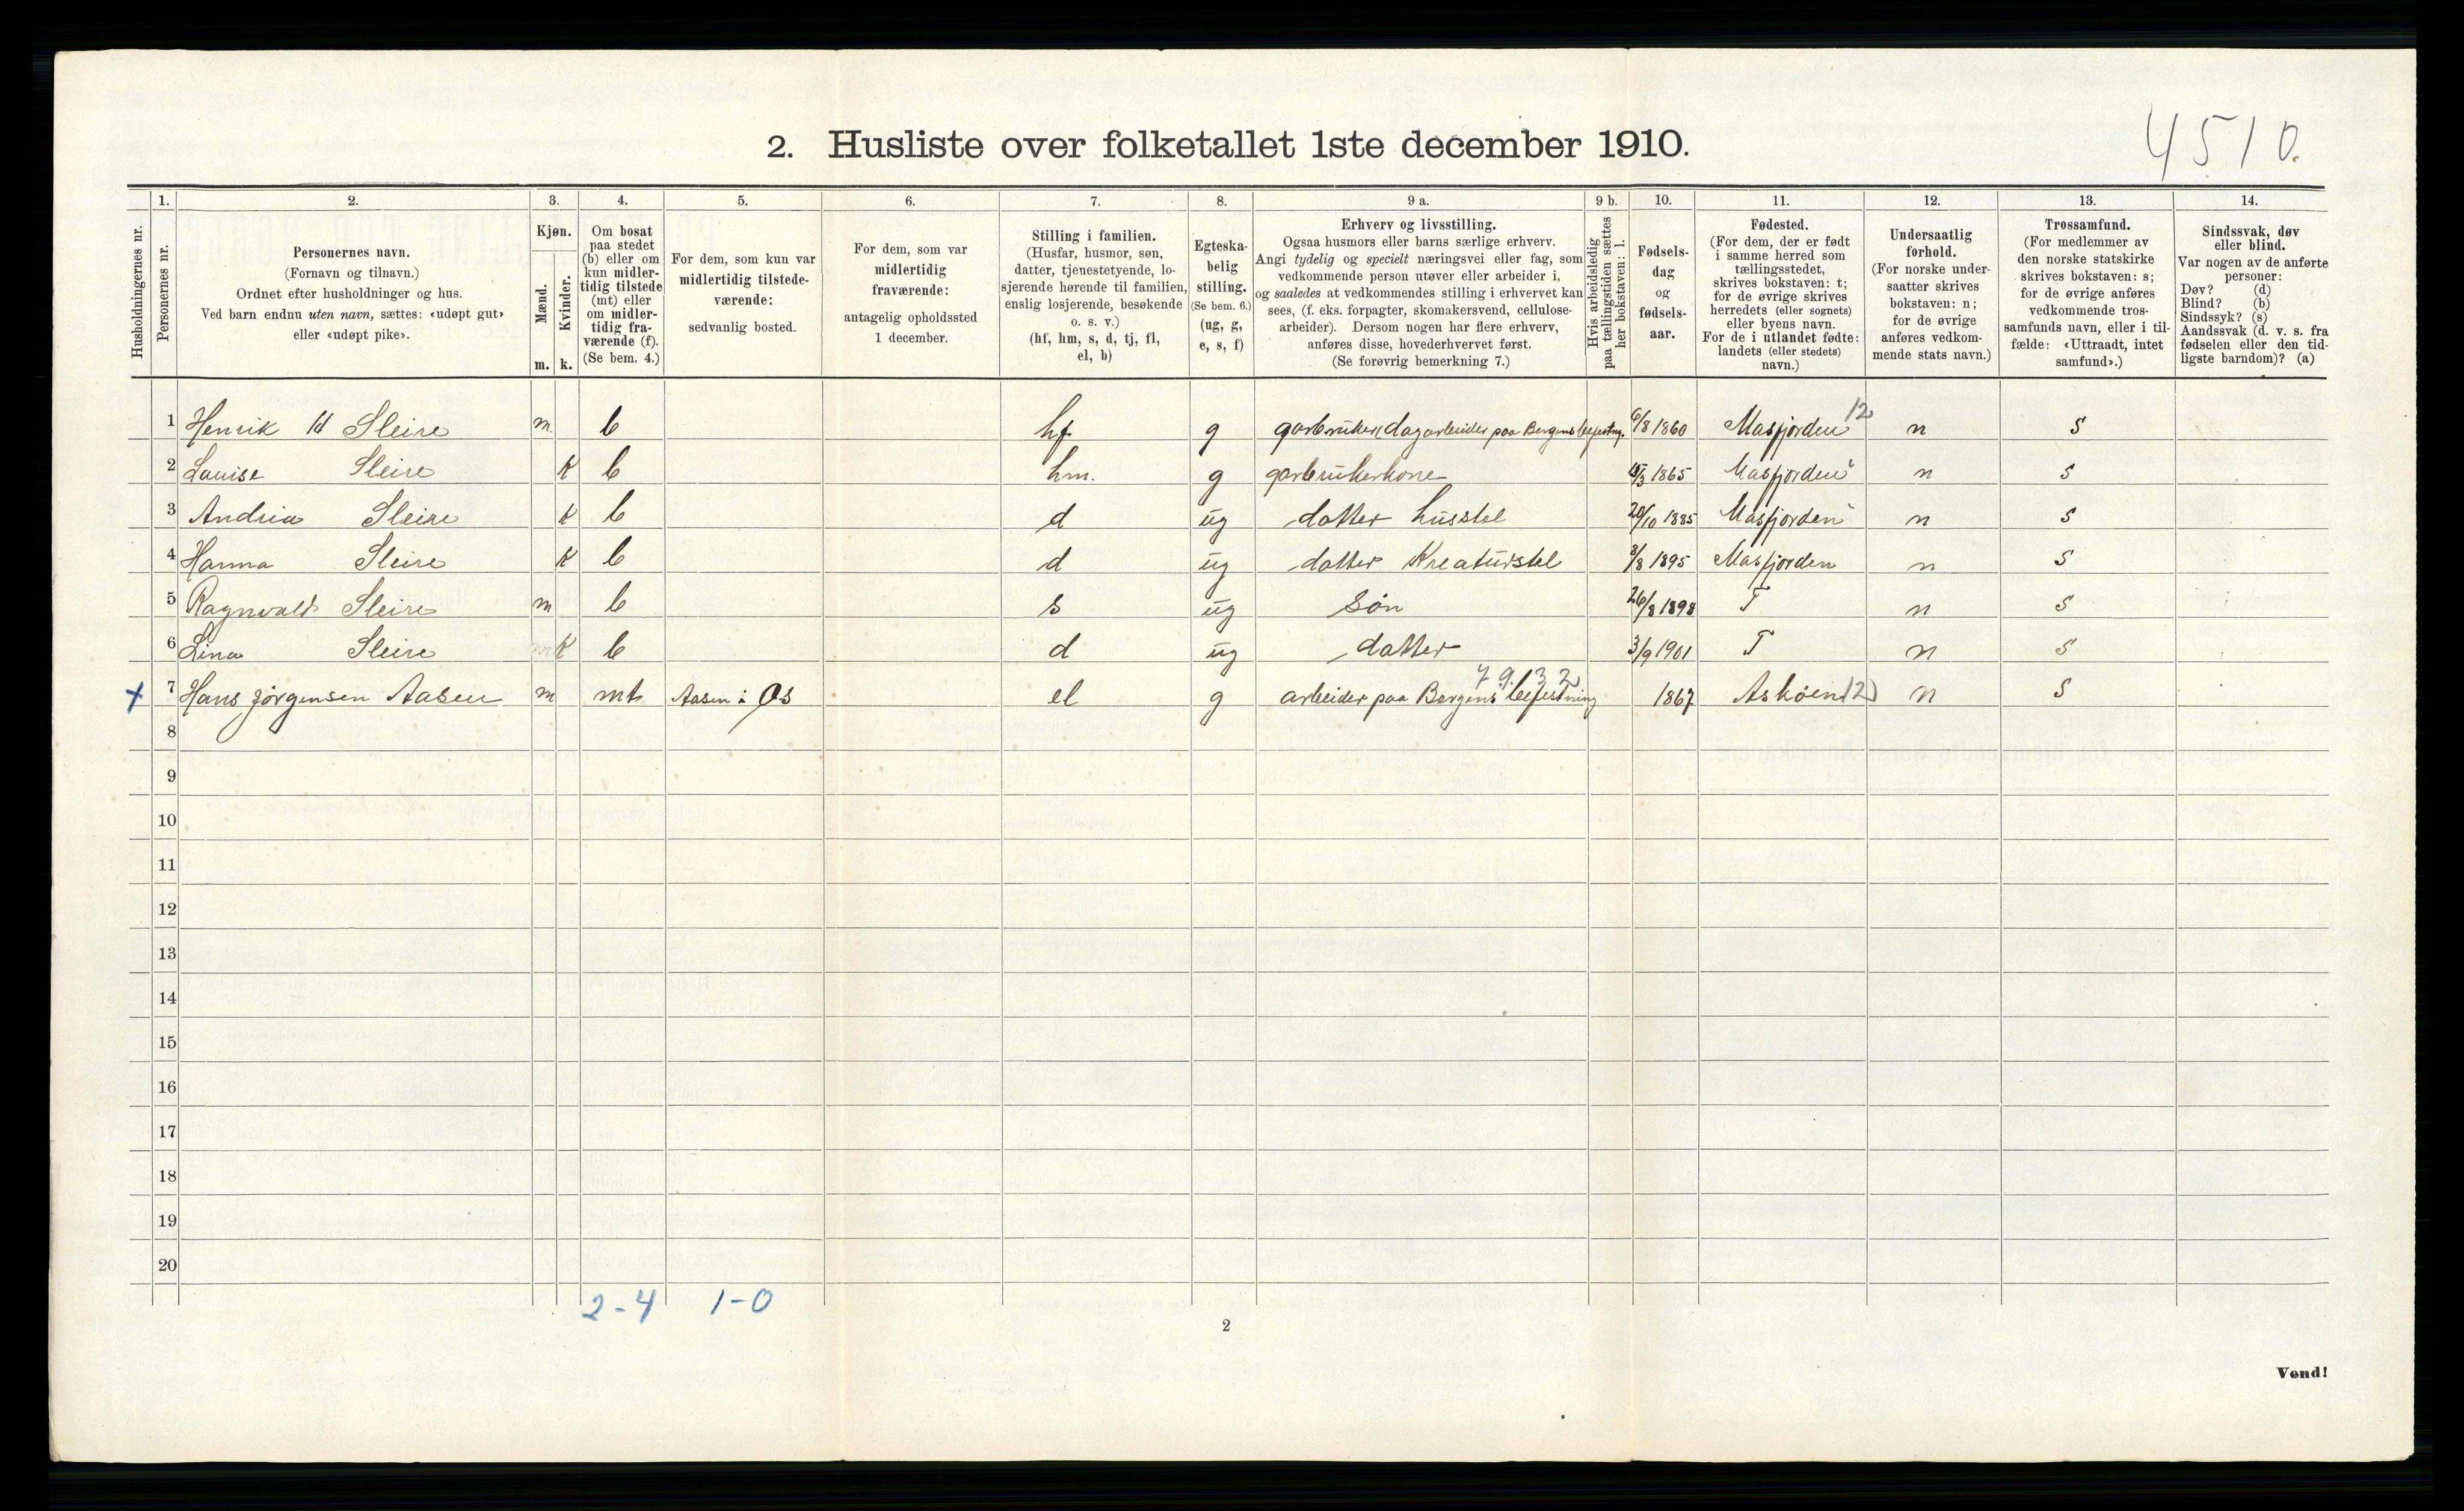 4510.
2. Husliste over folketallet 1ste december 1910.
Husholdningernes nr.
1. Personernes nr.
2. Personernes navn. (Fornavn og tilnavn.) Ordnet efter husholdninger og hus. Ved barn endnu uten navn, sættes: «udøpt gut» eller «udøpt pike».
3. Kjøn. Mænd. m. Kvinder. k.
4. Om bosat paa stedet (b) eller om kun midlertidig tilstede (mt) eller om midlertidig fraværende (f). (Se bem. 4.)
5. For dem, som kun var midlertidig tilstedeværende: sedvanlig bosted.
6. For dem, som var midlertidig fraværende: antagelig opholdssted 1 december.
7. Stilling i familien. (Husfar, husmor, søn, datter, tjenestetyende, losjerende hørende til familien, enslig losjerende, besøkende o. s. v.) (hf, hm, s, d, tj, fl, el, b)
8. Egteskabelig stilling. (Se bem. 6.) (ug, g, e, s, f)
9 a. Erhverv og livsstilling. Ogsaa husmors eller barns særlige erhverv. Angi tydelig og specielt næringsvei eller fag, som vedkommende person utøver eller arbeider i, og saaledes at vedkommendes stilling i erhvervet kan sees, (f. eks. forpagter, skomakersvend, cellulosearbeider). Dersom nogen har flere erhverv, anføres disse, hovederhvervet først. (Se forøvrig bemerkning 7.)
9 b. Hvis arbeidsledig paa tællingstiden sættes her bokstaven: l.
10. Fødselsdag og fødselsaar.
11. Fødested. (For dem, der er født i samme herred som tællingsstedet, skrives bokstaven: t; for de øvrige skrives herredets (eller sognets) eller byens navn. For de i utlandet fødte: landets (eller stedets) navn.)
12. Undersaatlig forhold. (For norske undersaatter skrives bokstaven: n; for de øvrige anføres vedkommende stats navn.)
13. Trossamfund. (For medlemmer av den norske statskirke skrives bokstaven: s; for de øvrige anføres vedkommende trossamfunds navn, eller i tilfælde: «Uttraadt, intet samfund».)
14. Sindssvak, døv eller blind. Var nogen av de anførte personer: Døv? (d) Blind? (b) Sindssyk? (s) Aandssvak (d. v. s. fra fødselen eller den tidligste barndom)? (a)
1 Henrik Sleire m. b hf g garbruker, dagarbeider paa Bergens befestng. 6/8 1860 Masfjorden 12 n s
2 Lauise Sleire k b hm. g garbrukerkone 1865 Masfjorden n s
3 Andria Sleire k b d ug datter husstel 20/10 1885 Masfjorden n s
4 Hanna Sleire k b d ug datter Kreaturstel 8/8 1895 Masfjorden n s
5 Ragnvald Sleire m b s ug søn 26/8 1898 T n s
6 Lina Sleire k b d ug datter 3/9 1901 T n s
7 9. 3 2
x 7 Hans Jørgensen Aasen m mt Aasen i Os el g arbeider paa Bergens befestning 1867 Askøen 12 n s
8
9
10
11
12
13
14
15
16
17
18
19
20
2-4 1-0
2
Vend!